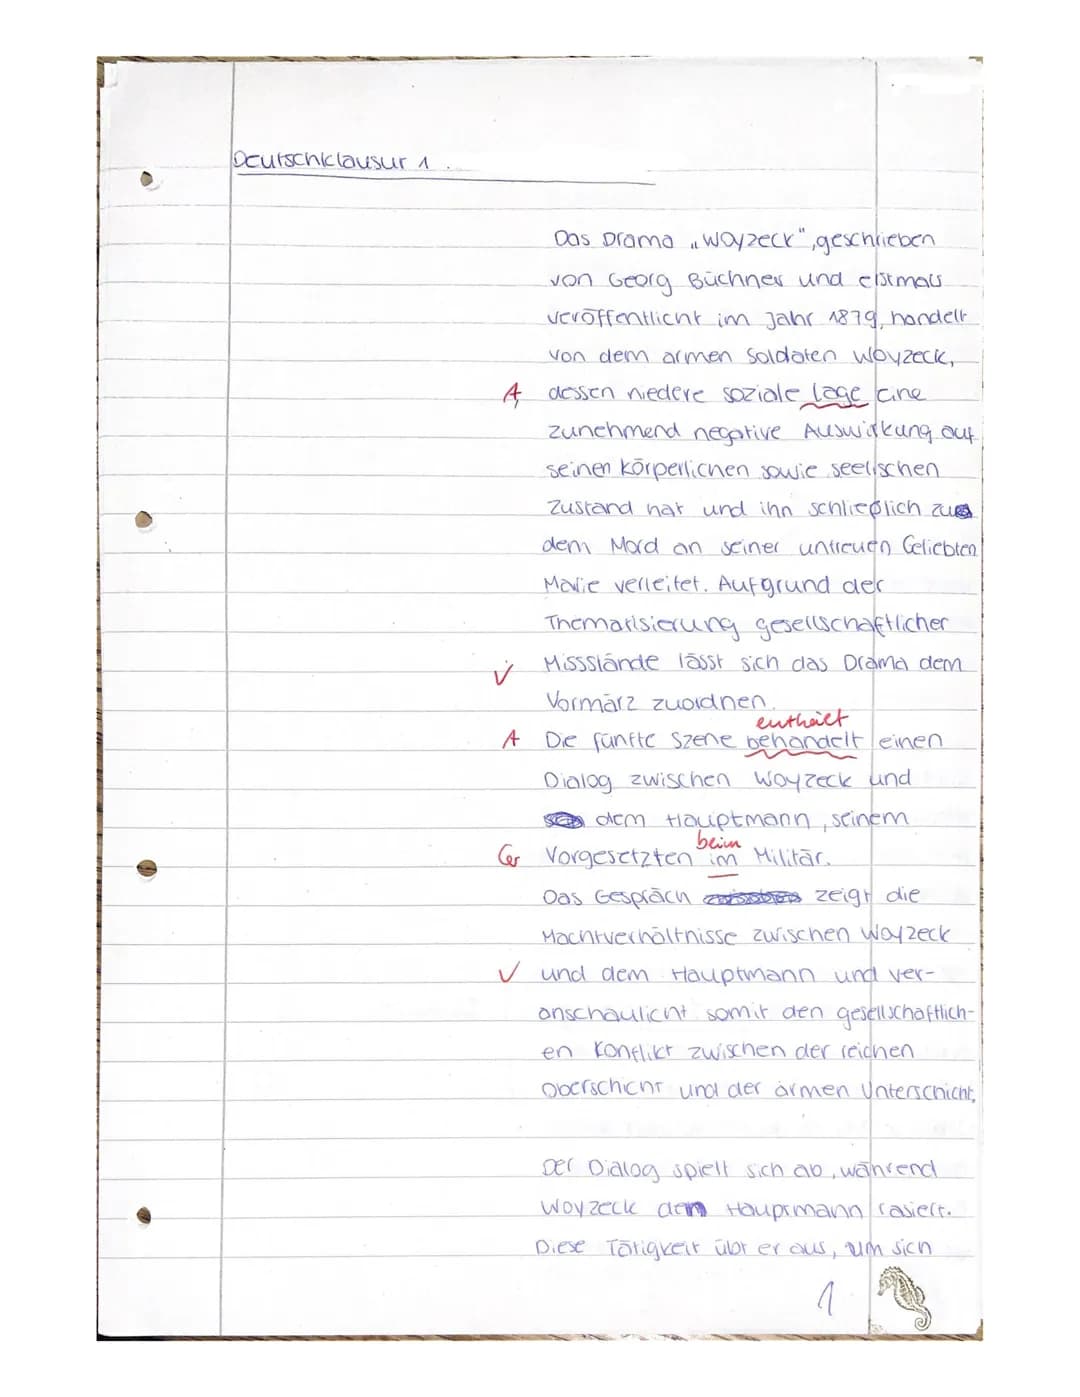 Deutschklausur 1.
Das Drama „Woyzeck", geschrieben
von Georg Büchner und erstmals
veröffentlicht im Jahr 1879, handelt
von dem armen Soldaten Woyzeck,
A dessen niedere soziale Lage eine
zunehmend negative Auswirkung auf
seinen körperlichen sowie seelischen
Zustand hat und ihn schließlich zu
dem Mord an seiner untreuen Geliebten
Marie verleitet. Aufgrund der
Thematisierung gesellschaftlicher
√ Missstände lässt sich das Drama dem
Vormärz zuordnen.
enthält
A Die fünfte Szene behandelt einen
Dialog zwischen Woyzeck und
dem Hauptmann, seinem
beim
Gr Vorgesetzten im Militär.
Das Gespräch zeigt die
Machtverhältnisse zwischen Woyzeck
√ und dem Hauptmann und ver-
anschaulicht somit den gesellschaftlich-
en Konflikt zwischen der reichen
Oberschicht und der armen Unterschicht.
Der Dialog spielt sich ab, während
Woyzeck den Hauptmann rasiert.
Diese Tätigkeit übt er aus, um sich
1